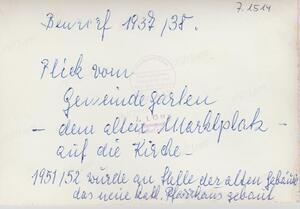 7.1514
Bendorf 1937/38.
Blick vom
Gemeindegarten
- dem alten Marktplatz -
auf die Kirche -
1951/52 wurde an Stelle der alten Gebäude
das neue kath. Pfarrhaus gebaut